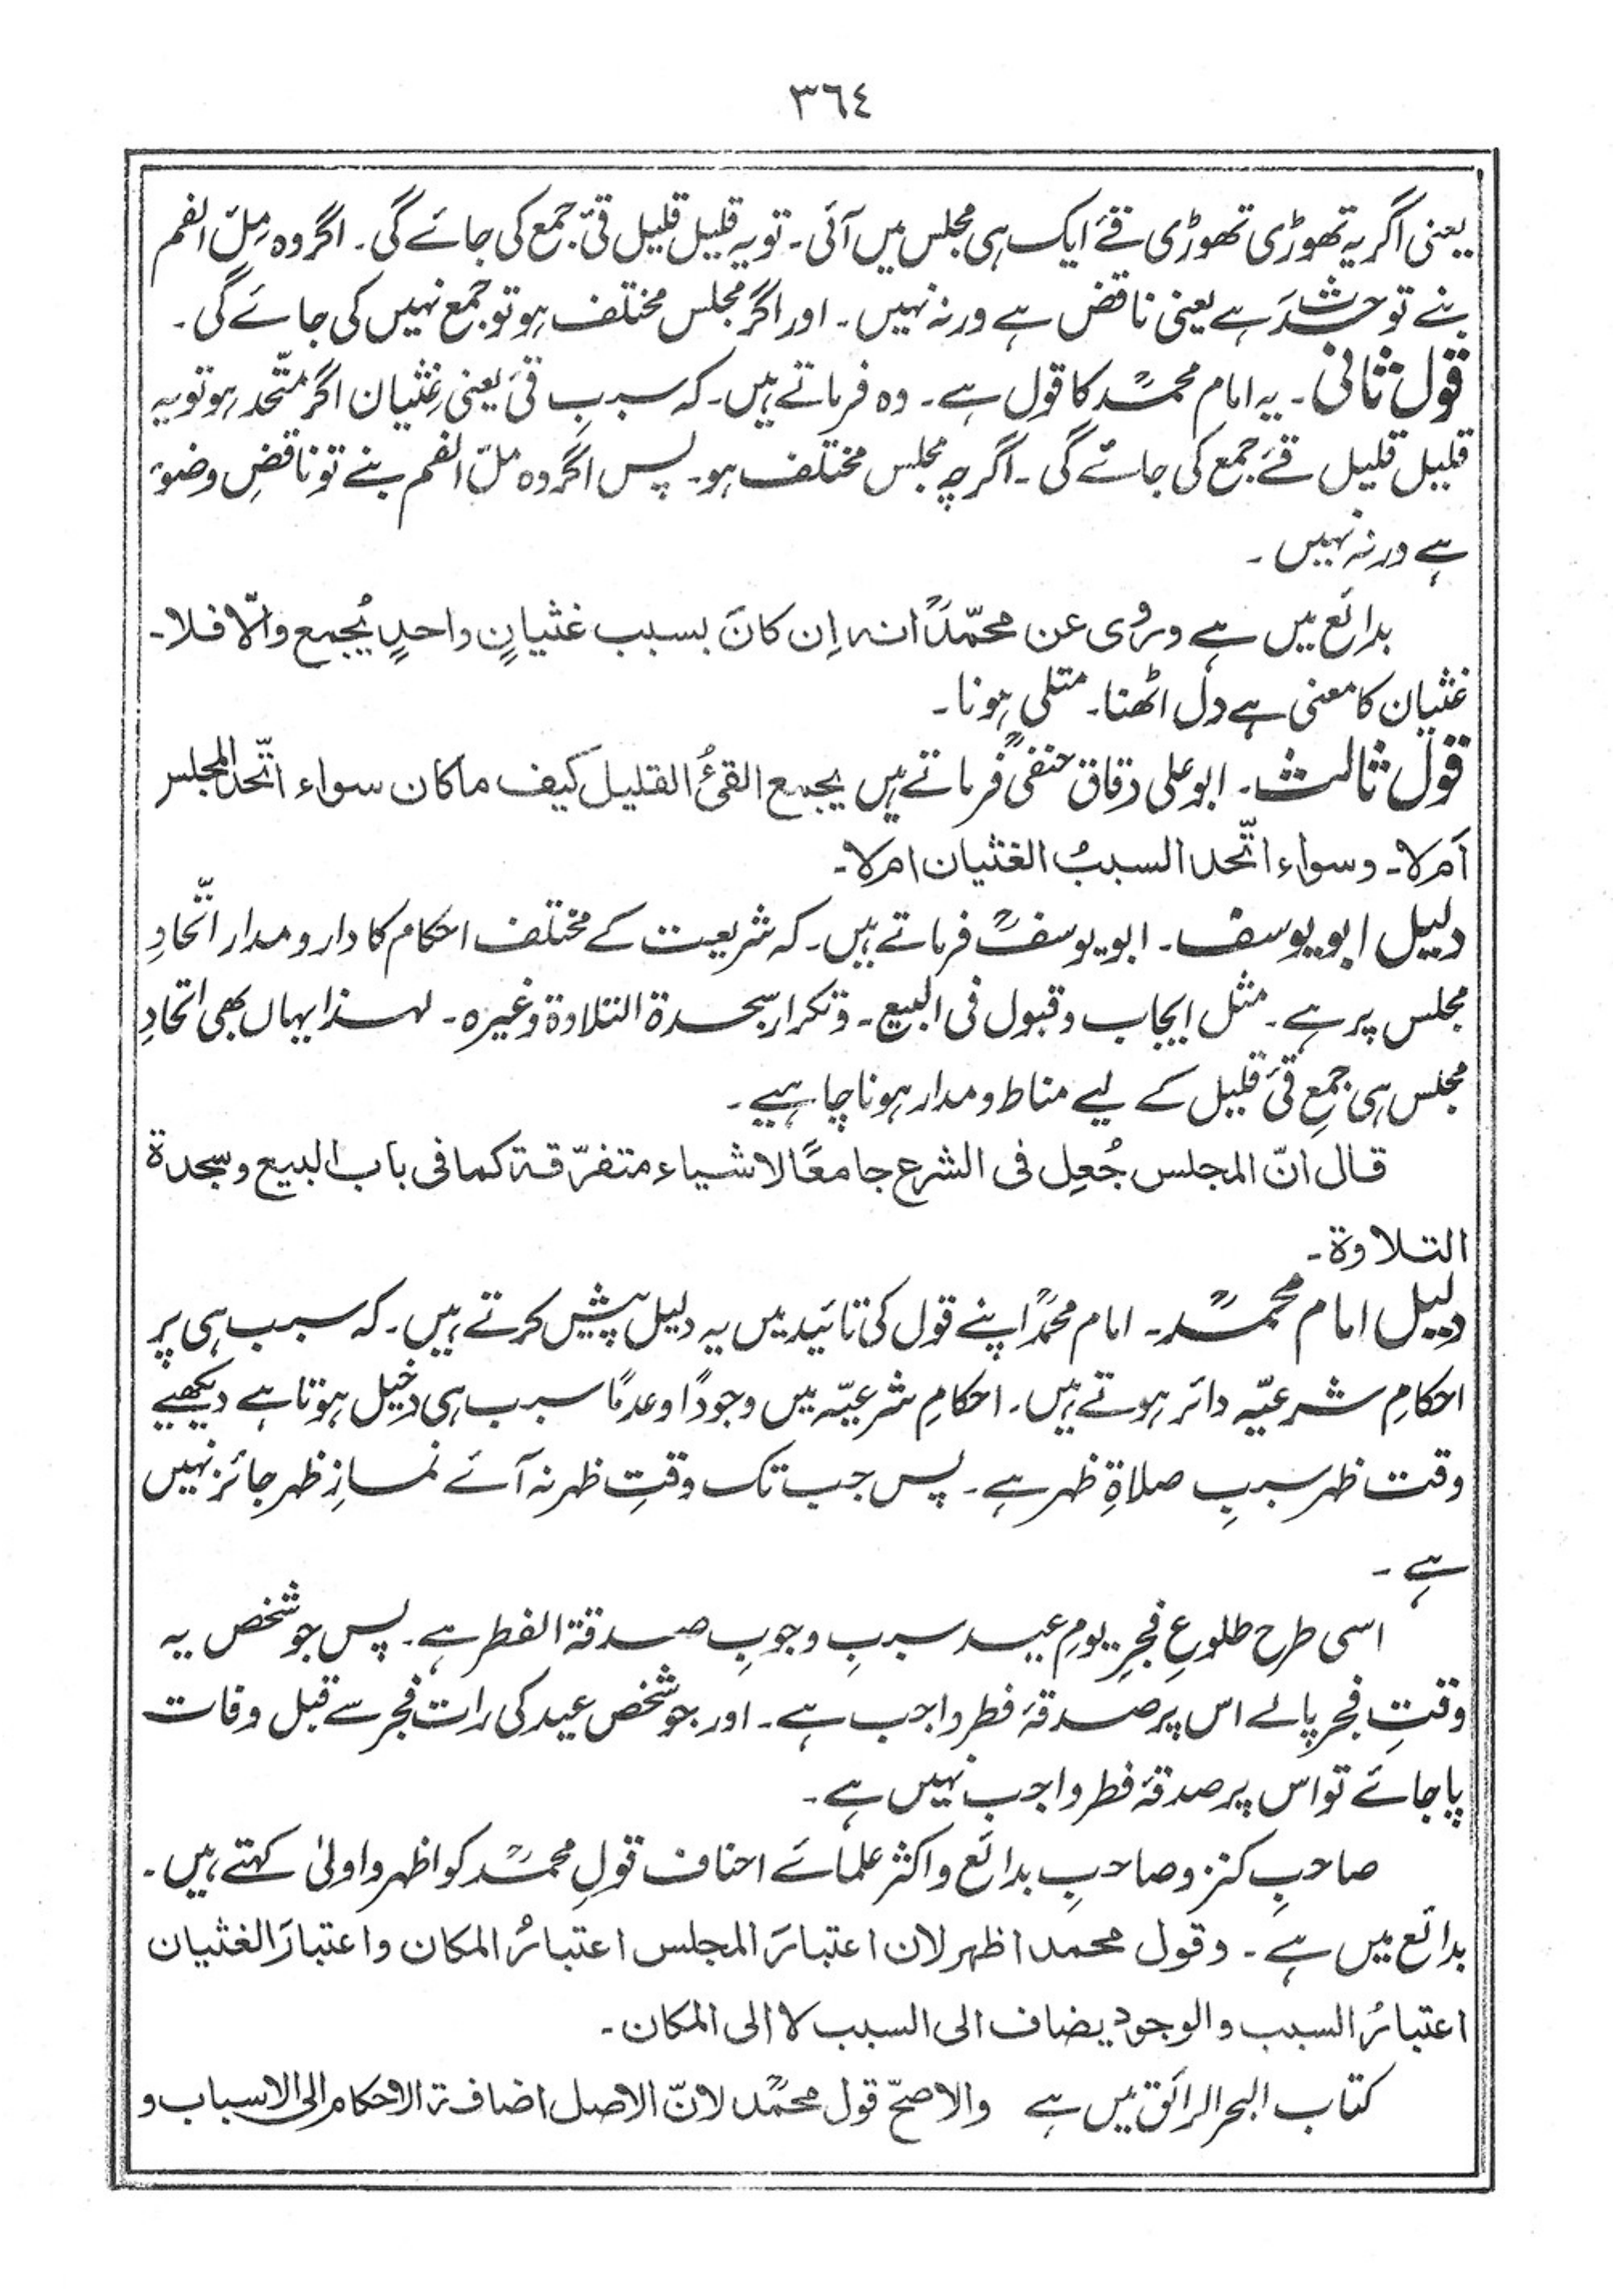 ٣٦٤
یعنی اگر یہ تھوڑی تھوڑی قے ایک ہی مجلس میں آئی۔ تو یہ قلیل قلیل قئ جمع کی جائے گی۔ اگر وہ مِلّ الفم
بنے تو حَدَث ہے یعنی ناقض ہے ورنہ نہیں۔ اور اگر مجلس مختلف ہو تو جمع نہیں کی جائے گی۔
قول ثانی۔ یہ امام محمدؒ کا قول ہے۔ وہ فرماتے ہیں۔ کہ سببِ قئ یعنی غثیان اگر متّحد ہو تو یہ
قلیل قلیل قے جمع کی جائے گی۔ اگرچہ مجلس مختلف ہو۔ پس اگر وہ ملّ الفم بنے تو ناقضِ وضوء
ہے ورنہ نہیں۔
بدائع میں ہے ورُوی عن محمّدؒ انہ اِن کانَ بسبب غثیانٍ واحدٍ یُجمع والّا فلا۔
غثیان کا معنی ہے دل اٹھنا۔ متلی ہونا۔
قول ثالث۔ ابو علی دقاق حنفیؒ فرماتے ہیں یجمع القئُ القلیل کیف ما کان سواء اتّحد المجلس
اَم لا۔ وسواء اتّحد السببُ الغثیان ام لا۔
دلیل ابو یوسف۔ ابو یوسفؒ فرماتے ہیں۔ کہ شریعت کے مختلف احکام کا دار و مدار اتّحادِ
مجلس پر ہے۔ مثل ایجاب و قبول فی البیع۔ و تکرار سجدۃ التلاوۃ وغیرہ۔ لہٰذا یہاں بھی اتحادِ
مجلس ہی جمعِ قئ قلیل کے لیے مناط و مدار ہونا چاہیے۔
قال انّ المجلس جُعِل فی الشرع جامعًا لاشیاء متفرّقۃ کما فی باب البیع وسجدۃ
التلاوۃ۔
دلیل امام محمدؒ۔ امام محمدؒ اپنے قول کی تائید میں یہ دلیل پیش کرتے ہیں۔ کہ سبب ہی پر
احکامِ شرعیّہ دائر ہوتے ہیں۔ احکامِ شرعیّہ میں وجودًا و عدمًا سبب ہی دخیل ہوتا ہے دیکھیے
وقت ظہر سببِ صلاۃِ ظہر ہے۔ پس جب تک وقتِ ظہر نہ آئے نمازِ ظہر جائز نہیں
ہے۔
اسی طرح طلوعِ فجرِ یومِ عید سببِ وجوبِ صدقۃ الفطر ہے۔ پس جو شخص یہ
وقتِ فجر پالے اس پر صدقۂ فطر واجب ہے۔ اور جو شخص عید کی رات فجر سے قبل وفات
پا جائے تو اس پر صدقۂ فطر واجب نہیں ہے۔
صاحبِ کنز و صاحبِ بدائع و اکثر علمائے احناف قولِ محمدؒ کو اظہر و اولیٰ کہتے ہیں۔
بدائع میں ہے۔ وقول محمد اظہر لان اعتبارَ المجلس اعتبارُ المکان واعتبارَ الغثیان
اعتبارُ السبب والوجود یضاف الی السبب لا الی المکان۔
کتاب البحر الرائق میں ہے والاصحّ قول محمّدؒ لانّ الاصل اضافۃ الاحکام الی الاسباب و